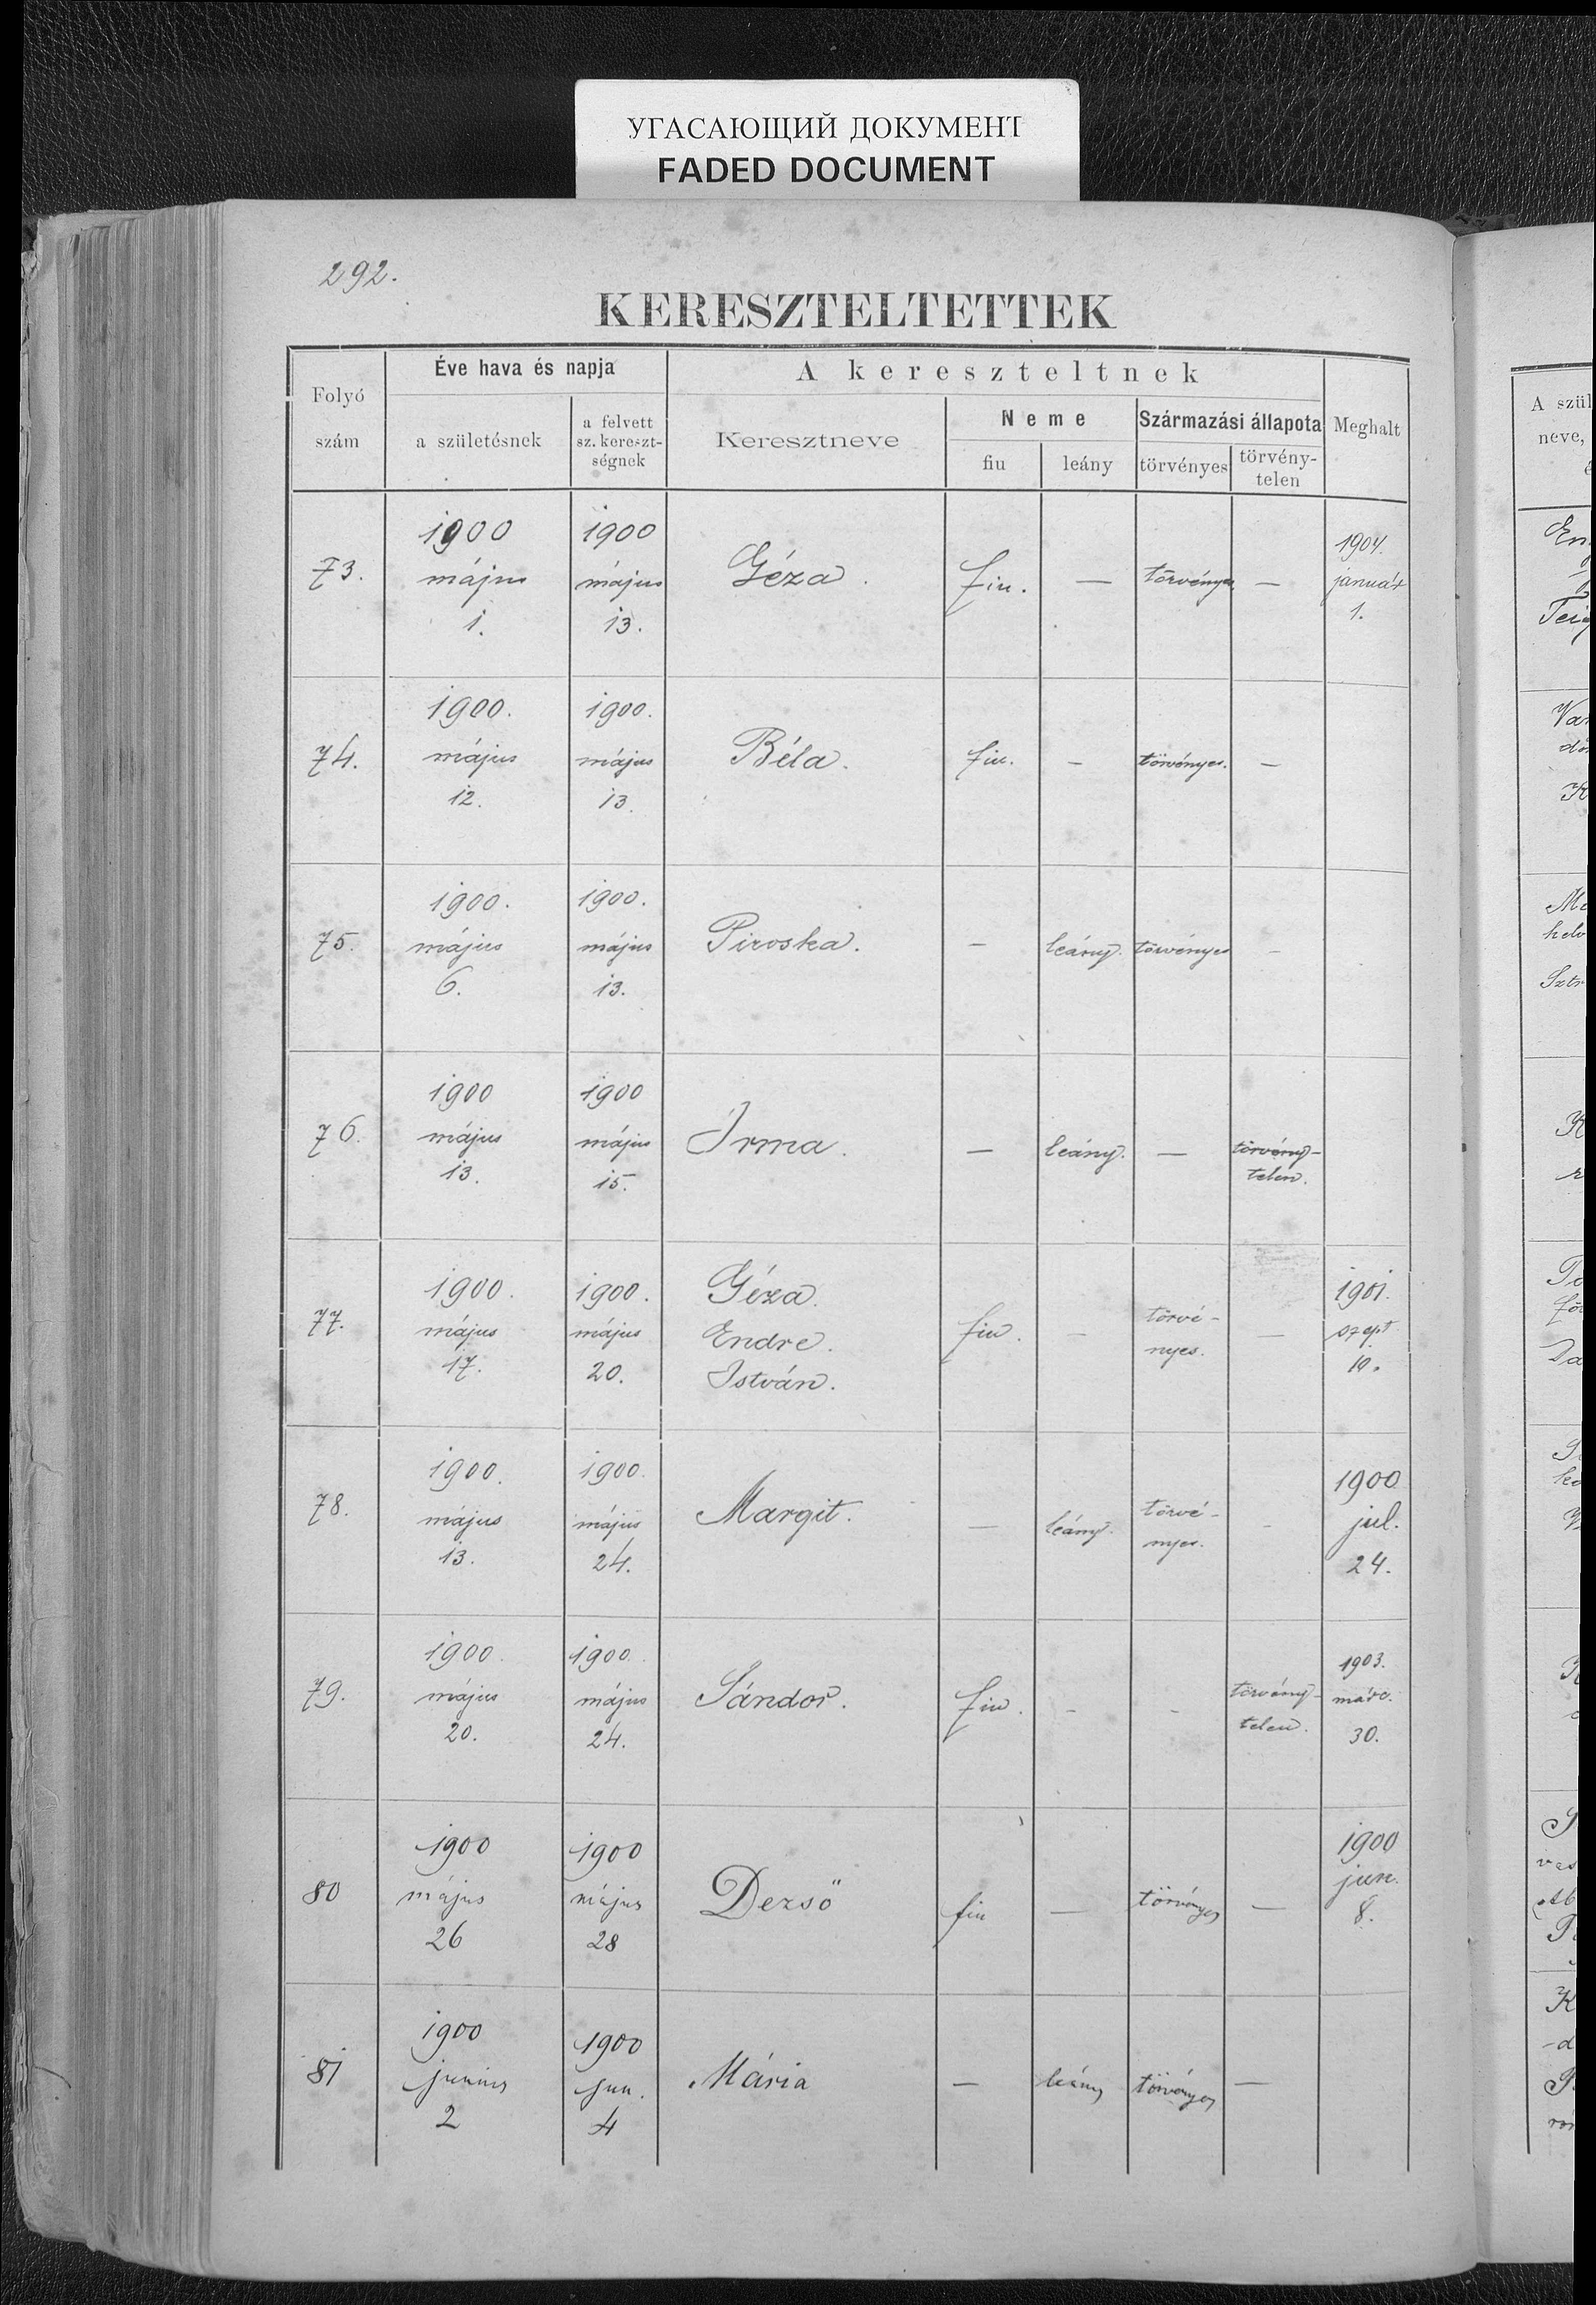 УГАСАЮЩИЙ ДОКУМЕНТ
FADED DOCUMENT
292.
KERESZTELTETTEK
Folyó szám
Éve hava és napja
a születésnek
a felvett sz. kereszt-ségnek
A kereszteltnek
Keresztneve
Neme
fiu
leány
Származási állapota
törvényes
törvény-telen
Meghalt
A szül
neve,
73. 1900 május 1. 1900 május 13. Géza. fiu. — törvényes. — 1904. január 1.
74. 1900. május 12. 1900. május 13. Béla. fiu. — törvényes. —
75. 1900. május 6. 1900. május 13. Piroska. — leány. törvényes —
76. 1900 május 13. 1900 május 15. Irma. — leány. — törvény-telen.
77. 1900. május 17. 1900. május 20. Géza. Endre. István. fiu. — törvé-nyes. — 1901. szept. 10.
78. 1900. május 13. 1900. május 24. Margit. — leány. törvé-nyes. — 1900 jul. 24.
79. 1900. május 20. 1900. május 24. Sándor. fiu. — — törvény-telen. 1903. márc. 30.
80 1900 május 26 1900 május 28 Dezsö fiu — törvényes — 1900 jun. 8.
81 1900 junius 2 1900 jun. 4 Mária — leány törvényes —